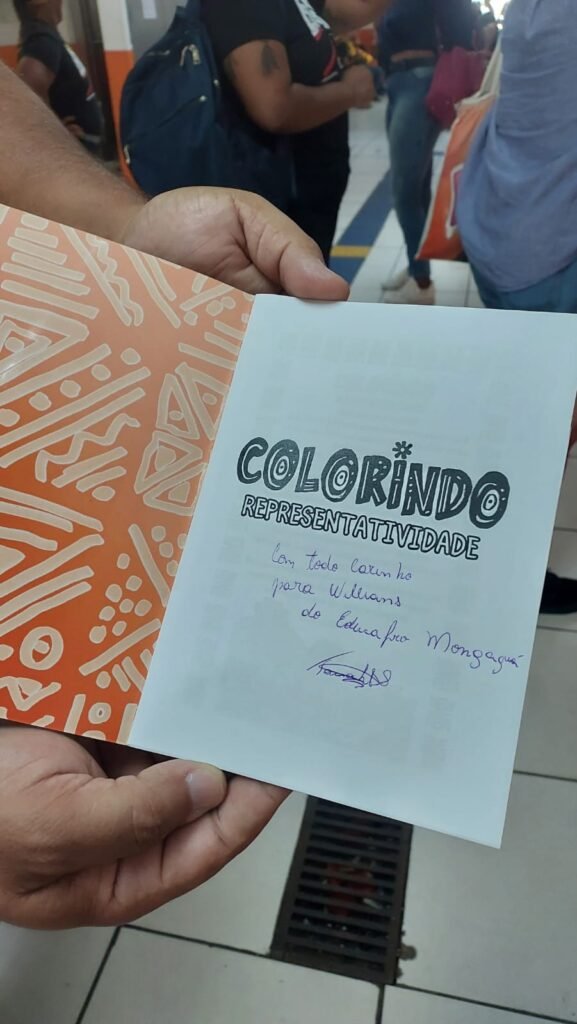 COLORINDO
REPRESENTATIVIDADE
Com todo carinho
para Willians
do Educafro Mongaguá